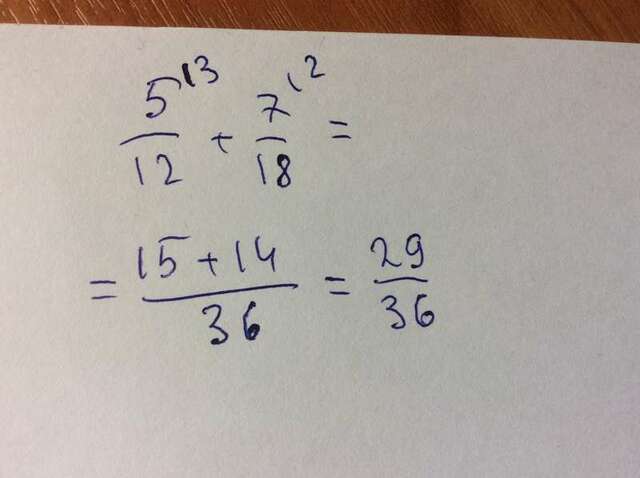 5⁽³/12 + 7⁽²/18 =
= 15 + 14/36 = 29/36